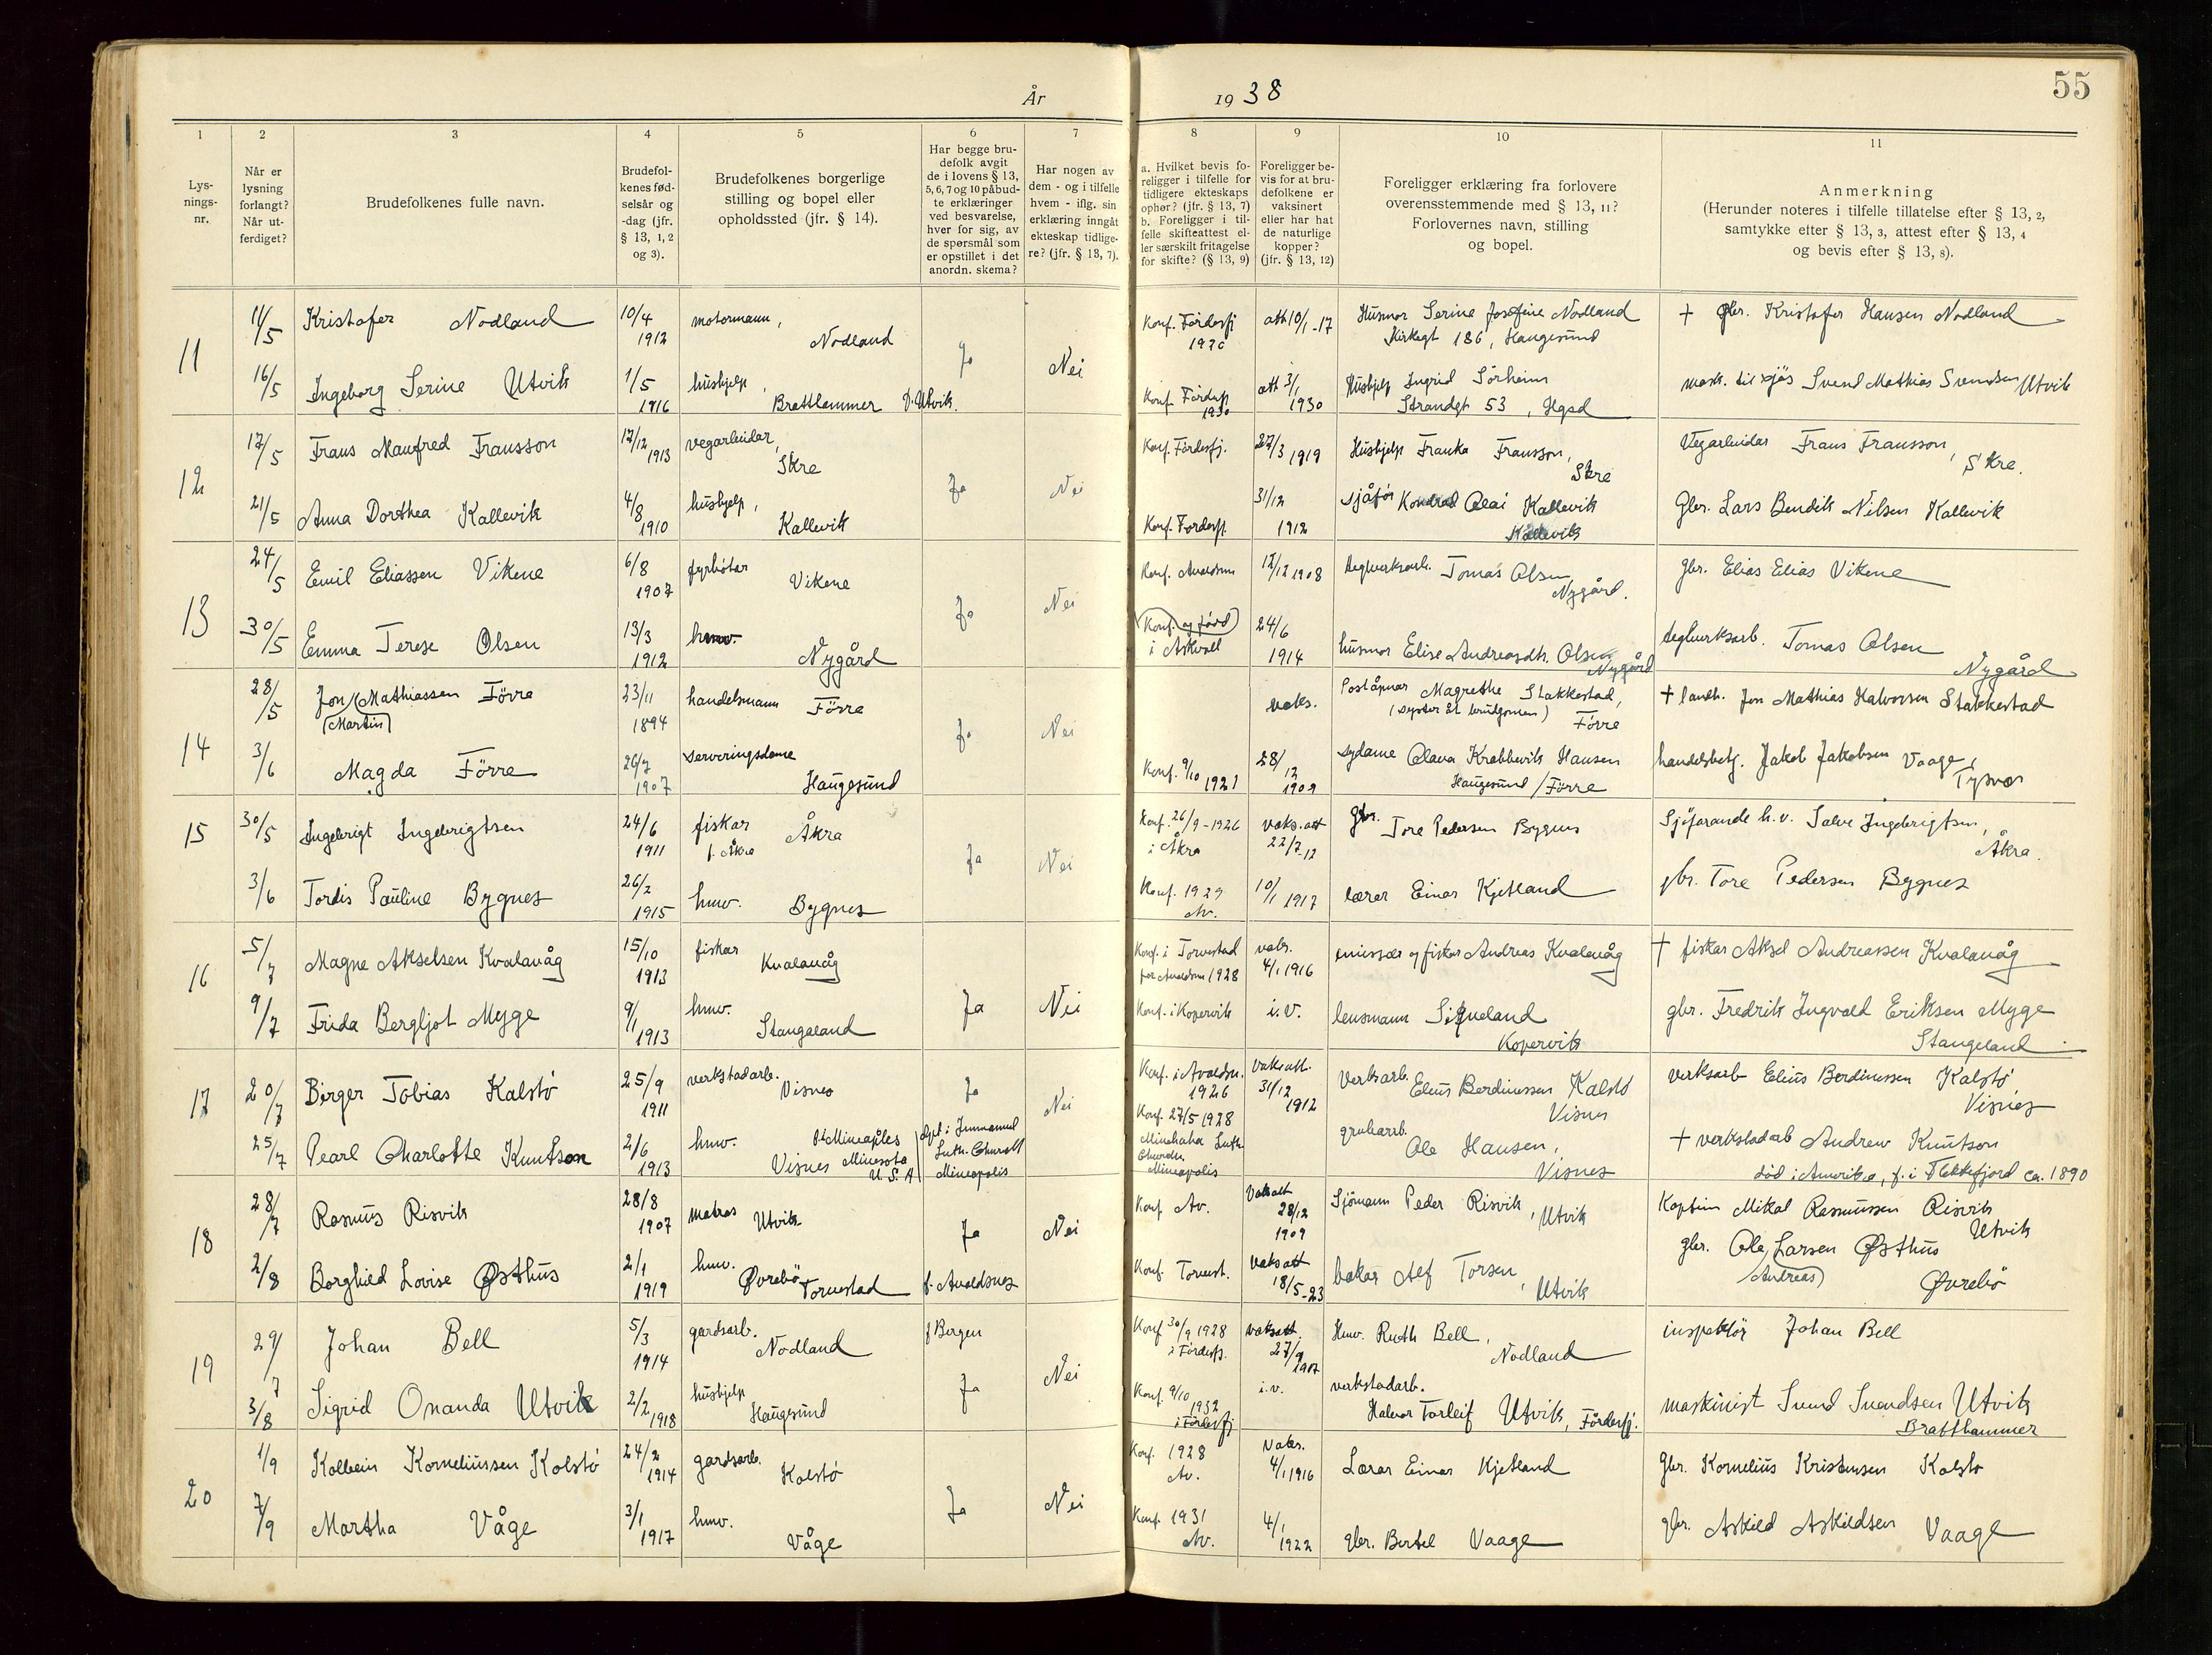 55
År 19 38
1 2 3 4 5 6 7 8 9 10 11
Lys-
nings-
nr.
Når er
lysning
forlangt?
Når ut-
ferdiget?
Brudefolkenes fulle navn.
Brudefol-
kenes fød-
selsår og
-dag (jfr.
§ 13, 1, 2
og 3).
Brudefolkenes borgerlige
stilling og bopel eller
opholdssted (jfr. § 14).
Har begge bru-
defolk avgit
de i lovens § 13,
5, 6, 7 og 10 påbud-
te erklæringer
ved besvarelse,
hver for sig, av
de spørsmål som
er opstillet i det
anordn. skema?
Har nogen av
dem - og i tilfelle
hvem - iflg. sin
erklæring inngåt
ekteskap tidlige-
re? (jfr. § 13, 7).
a. Hvilket bevis fo-
religger i tilfelle for
tidligere ekteskaps
ophør? (jfr. § 13, 7)
b. Foreligger i til-
felle skifteattest el-
ler særskilt fritagelse
for skifte? (§ 13, 9)
Foreligger be-
vis for at bru-
defolkene er
vaksinert
eller har hat
de naturlige
kopper?
(jfr. § 13, 12)
Foreligger erklæring fra forlovere
overensstemmende med § 13, 11?
Forlovernes navn, stilling
og bopel.
Anmerkning
(Herunder noteres i tilfelle tillatelse efter § 13, 2,
samtykke efter § 13, 3, attest efter § 13, 4
og bevis efter § 13, 8).
11
11/5 Kristofer Nodland 10/4 1912 motormann, Nodland Ja Nei Konf. Førdesfj 1926 att 10/1-17 Husmor Serine Josefine Nodland
Kirkegt 186, Haugesund
+ gbr. Kristofer Hansen Nodland
16/5 Ingeborg Serine Utvik 1/5 1916 hushjelp, Bratthammer Utvik. Konf. Førdesfj 1930 att 3/1 1930 Hushjelp Ingrid Sørheim
Strandgt 53, Hgsd
mask. til sjøs Svend Mathias Svendsen Utvik
12
17/5 Frans Manfred Fransson 17/12 1913 vegarbeidar, Skre Ja Nei Konf. Førdesfj. 27/3 1919 Hushjelp Franka Fransson,
Skre
Vegarbeidar Frans Fransson,
Skre.
21/5 Anna Dorthea Kallevik 4/8 1910 hushjelp, Kallevik Konf. Førdesfj. 31/12 1912 sjåfør Konrad Olai Kallevik
Kallevik
Gbr. Lars Bendik Nilsen Kallevik
13
24/5 Emil Eliassen Vikene 6/8 1907 fyrbøtar Vikene Ja Nei Konf. Avaldsnes 17/12 1908 teglverksarb. Tomas Olsen,
Nygård.
gbr. Elias Elias Vikene
30/5 Emma Terese Olsen 13/3 1912 hmv. Nygård Konf. og fødd
i Askvoll
24/6 1914 husmor Elise Andreasdtr. Olsen
Nygård
teglverksarb. Tomas Olsen
Nygård
14
28/5 Jon Mathiassen Förre
(Martin)
23/11 1894 handelsmann Förre Ja Nei vaks. Poståpnar Magrethe Stakkestad,
(syster åt brudgomen) Förre
+ landh. Jon Mathias Halvorsen Stakkestad
3/6 Magda Förre 26/7 1907 serveringsdame
Haugesund
Konf. 9/10 1921 28/12 1909 sydame Olava Krabbevik Hansen
Haugesund / Förre
handelsbetj. Jakob Jakobsen Vaage,
Tysvær
15
30/5 Ingebrigt Ingebrigtsen 24/6 1911 fiskar Åkra
f. Åkra
Ja Nei Konf. 26/9-1926
i Åkra
vaks. att 22/7-12 gbr. Tore Pedersen Bygnes
Sjøfarande h.v. Salve Ingebrigtsen,
Åkra.
3/6 Tordis Pauline Bygnes 26/2 1915 hmv. Bygnes Konf. 1929
Av.
10/1 1917 lærar Einar Kjetland gbr. Tore Pedersen Bygnes
16
5/7 Magne Akselsen Kvalavåg 15/10 1913 fiskar Kvalavåg Ja Nei Konf. i Torvestad
for Avaldsnes 1928
vaks. 4/1 1916 emissær og fiskar Andreas Kvalavåg + fiskar Aksel Andreassen Kvalavåg
9/7 Frida Bergljot Myge 9/1 1913 hmv. Stangaland Konf. i Kopervik i.v. lensmann Signeland
Kopervik
gbr. Fredrik Ingvald Eriksen Myge
Stangeland
17
20/7 Birger Tobias Kalstø 25/9 1911 verkstadarb. Visnes Ja Nei Konf. i Avaldsn.
1926
Vaks. att. 31/12 1912 Verksarb. Elius Berdinessen Kalstø
Visnes
verksarb Elius Berdinessen Kalstø
Visnes
25/7 Pearl Charlotte Knutson 2/6 1913 hmv. Mineaples
Visnes Minesota
U.S.A
døpt i Immanuel
Luth. Church
Mineapolis
Konf. 27/5 1928
Minehaha Luth.
Church
Mineapolis
grubearb. Ole Hansen,
Visnes
+ verkstadarb Andrew Knutson
død i Amerika, f. i Flekkefjord ca. 1890
18
28/7 Rasmus Risvik 28/8 1907 matros Utvik Ja Nei Konf Av. Vaksatt 28/12 1909 Sjømann Peder Risvik, Utvik
Kaptein Mikal Rasmussen Risvik
Utvik
2/8 Borghild Lovise Østhus 2/1 1919 hmv. Øvrebø Torvestad f. Avaldsnes Konf. Torvest. Vaksatt 18/5-23 bakar Alf Torsen, Utvik
gbr. Ole Larsen Østhus
(Andreas) Øvrebø
19
29/7 Johan Bell 5/3 1914 gardsarb. Nodland f Bergen Ja Nei Konf 30/9 1928
i Førdesfj.
vaksatt. 27/9 1917 Hmv. Ruth Bell,
Nodland
inspektør Johan Bell
3/8 Sigrid Omanda Utvik 2/2 1918 hushjelp
Haugesund
Konf. 9/10 1932
i Førdesfj
i.v. verkstadarb.
Halvor Torleif Utvik, Førdesfj.
maskinist Svend Svendsen Utvik
Bratthammer
20
1/9 Kolbein Korneliussen Kolstø 24/2 1914 gardsarb. Kolstø Ja Nei Konf. 1928
Av.
Vaks. 4/1 1916 Lærar Einar Kjetland Gbr. Kornelius Kristensen Kolstø
7/9 Martha Våge 3/1 1917 hmv. Våge Konf. 1931
Av.
4/1 1922 gbr. Bertel Vaage gbr. Askild Askildsen Vaage